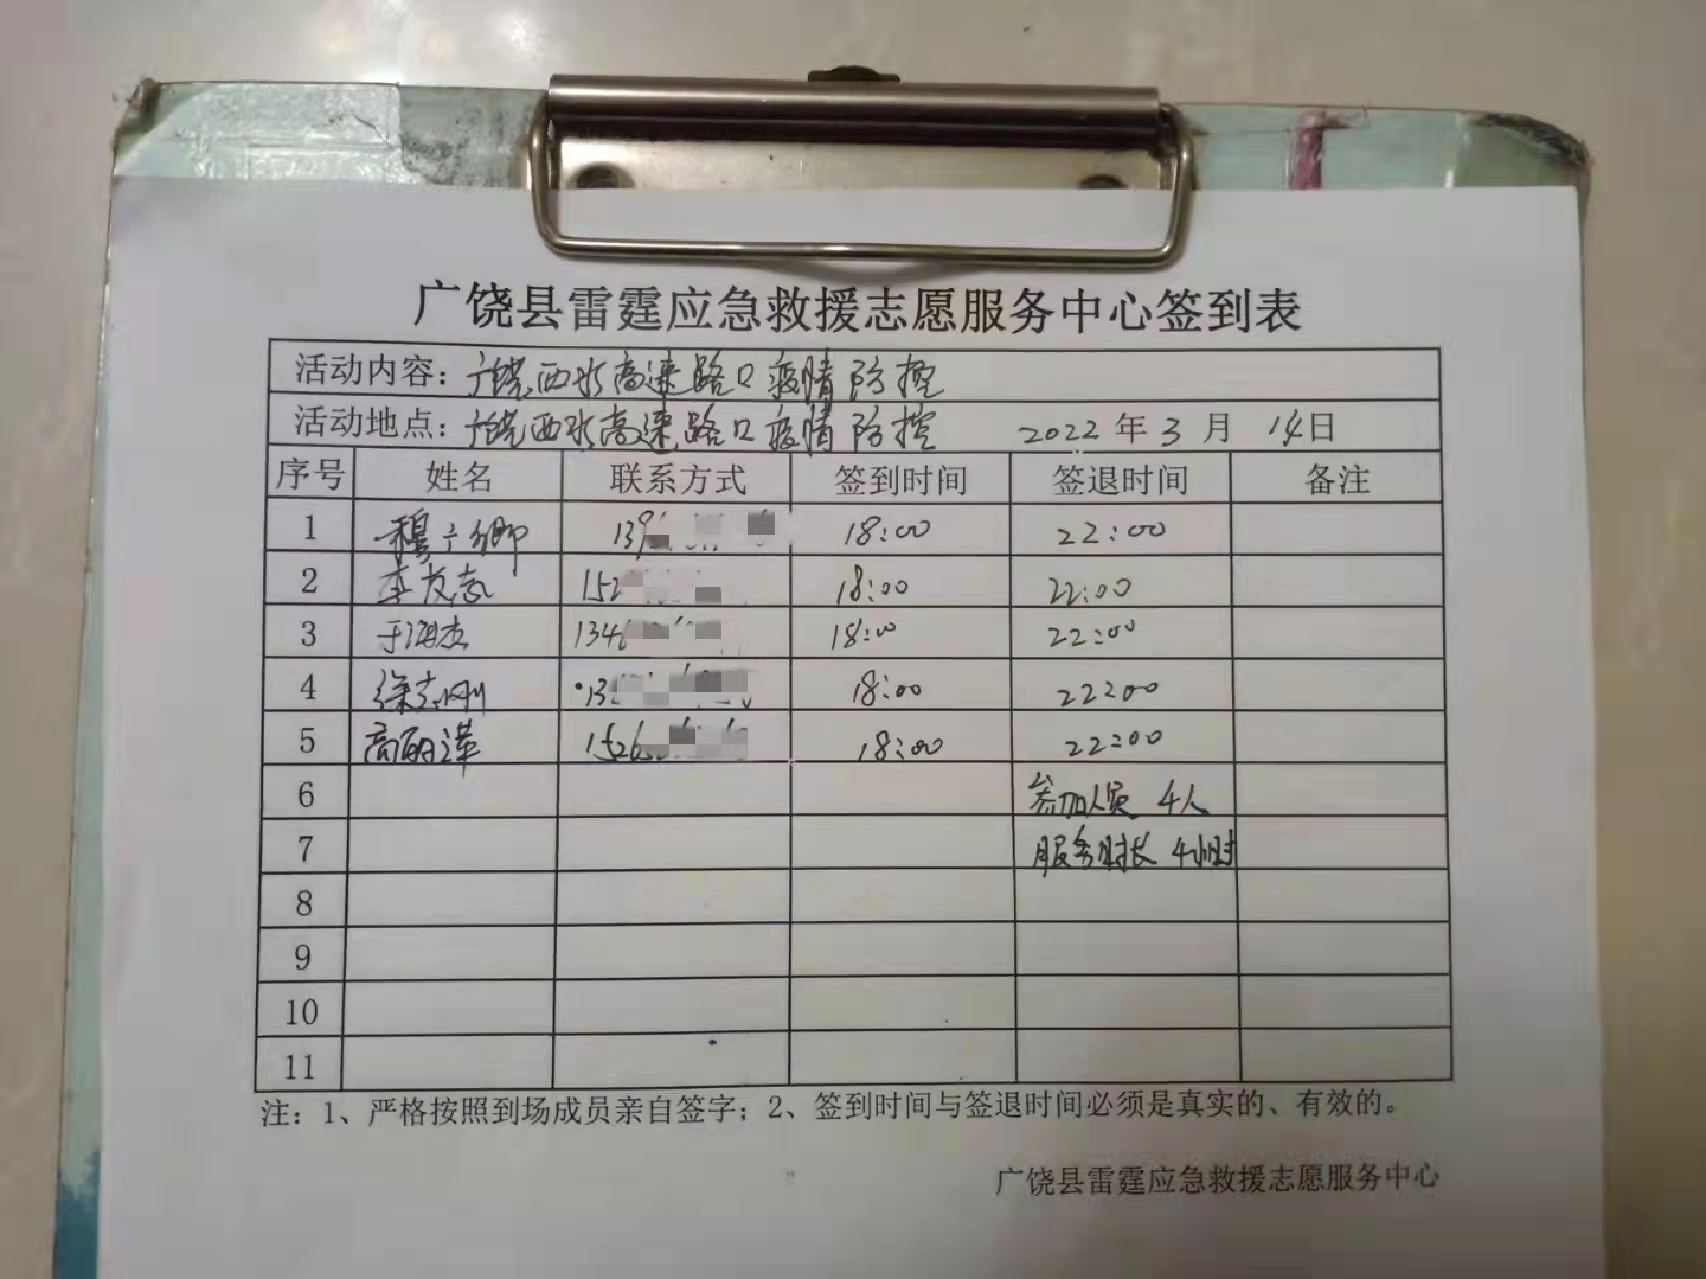 广饶县雷霆应急救援志愿服务中心签到表
活动内容：广饶西水高速路口疫情防控
活动地点：广饶西水高速路口疫情防控 2022年3月14日
序号 姓名 联系方式 签到时间 签退时间 备注
1 穆广卿 139 18:00 22:00
2 李友志 152 18:00 22:00
3 于海杰 134 18:00 22:00
4 徐志刚 13 18:00 22:00
5 高丽萍 1526 18:00 22:00
6 参加人员 4人
7 服务时长 4小时
8
9
10
11
注：1、严格按照到场成员亲自签字；2、签到时间与签退时间必须是真实的、有效的。
广饶县雷霆应急救援志愿服务中心